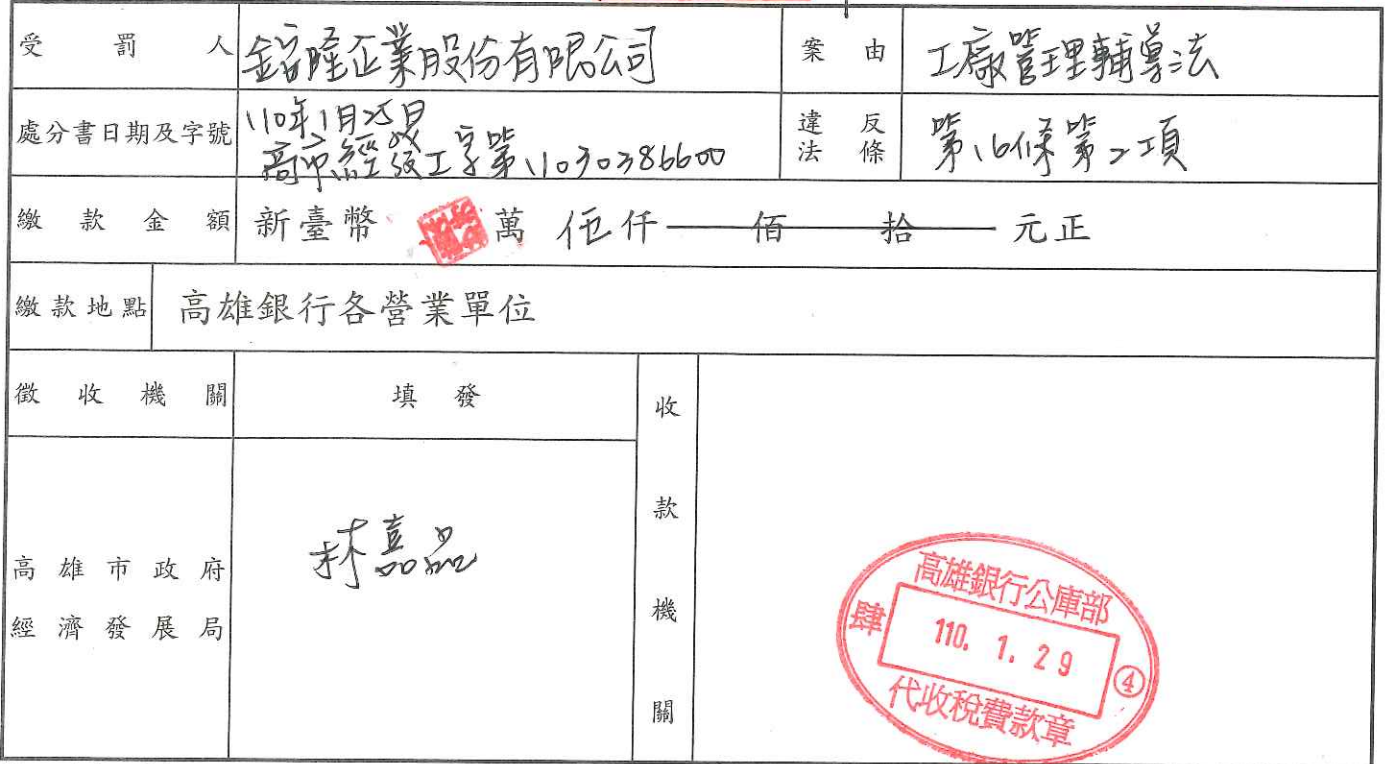 受罰人 鎔隆企業股份有限公司 案由 工廠管理輔導法
處分書日期及字號 110年1月25日
高市經發工字第11030386600 違反法條 第16條第2項
繳款金額 新臺幣 萬伍仟佰拾元正
繳款地點 高雄銀行各營業單位
徵收機關 填發 收款機關
高雄市政府
經濟發展局
林嘉品
高雄銀行公庫部
肆 110. 1. 29 ④
代收稅費款章